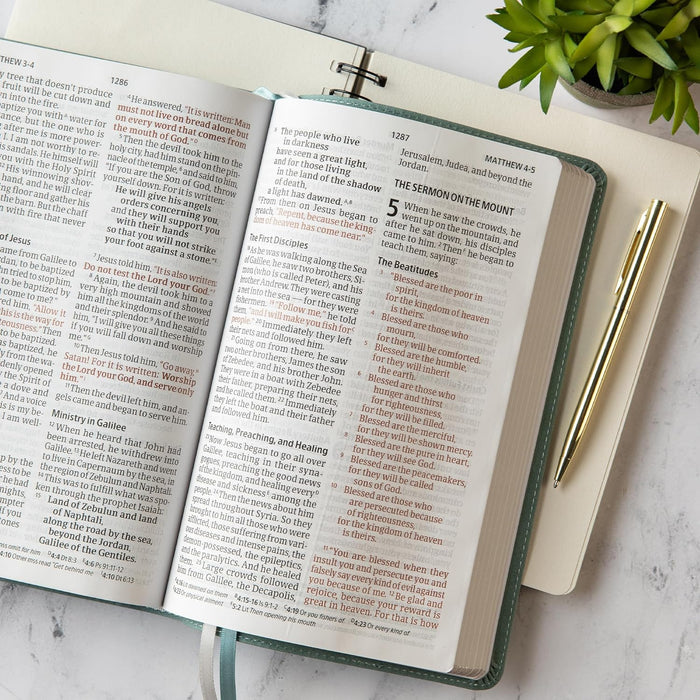 THEW 3-4
1286
tree that doesn't produce
fruit will be cut down and
into the fire.
baptize you with water for
but the one who is
after me is more power-
I am not worthy to re-
sandals. He himself will
you with the Holy Spirit
His winnowing shov-
hand, and he will clear
floor and gather his
barn. But the chaff
with fire that never
of Jesus
came from Galilee to
Jordan, to be baptized
tried to stop him,
be baptized by
come to me?"
him, "Allow it
this is the way for
Then
to be baptized.
baptized, he
from the wa-
opened
the Spirit of
And a voice
is my be-
I am well-
up by the
to be
he had
nights,
tempter
you
stones
4 He answered, "It is written: Man
must not live on bread alone but
on every word that comes from
the mouth of God."
5 Then the devil took him to the
holy city, had him stand on the pin-
nacle of the temple, 6 and said to him,
"If you are the Son of God, throw
yourself down. For it is written:
He will give his angels
orders concerning you,
and they will support you
with their hands
so that you will not strike
your foot against a stone."
7 Jesus told him, "It is also written:
Do not test the Lord your God."
8 Again, the devil took him to a
very high mountain and showed
him all the kingdoms of the world
and their splendor. 9 And he said to
him, "I will give you all these things
if you will fall down and worship
me."
10 Then Jesus told him, "Go away,
Satan! For it is written: Worship
the Lord your God, and serve only
him."
11 Then the devil left him, and an-
gels came and began to serve him.
Ministry in Galilee
12 When he heard that John had
been arrested, he withdrew into
Galilee. 13 He left Nazareth and went
to live in Capernaum by the sea, in
the region of Zebulun and Naphtali.
14 This was to fulfill what was spo-
ken through the prophet Isaiah:
15 Land of Zebulun and land
of Naphtali,
along the road by the sea,
beyond the Jordan,
Galilee of the Gentiles.
mss omit for him 4:4 Dt 8:3 4:6 Ps 91:11-12
4:10 Other mss read "Get behind me 4:10 Dt 6:13
1287
MATTHEW 4-5
The people who live
in darkness
have seen a great light,
and for those living
in the land of the shadow
of death,
a light has dawned.
From then on Jesus began to
preach, "Repent, because the king-
dom of heaven has come near."
The First Disciples
As he was walking along the Sea
of Galilee, he saw two brothers, Si-
mon (who is called Peter), and his
brother Andrew. They were casting
a net into the sea — for they were
fishermen. "Follow me," he told
them, "and I will make you fish for
people." 20 Immediately they left
their nets and followed him.
Going on from there, he saw
two other brothers, James the son
of Zebedee, and his brother John.
They were in a boat with Zebedee
their father, preparing their nets,
and he called them. 22 Immediately
they left the boat and their father
and followed him.
Teaching, Preaching, and Healing
Now Jesus began to go all over
Galilee, teaching in their syna-
gogues, preaching the good news
of the kingdom, and healing every
disease and sickness among the
people. 24 Then the news about him
spread throughout Syria. So they
brought to him all those who were
afflicted, those suffering from vari-
ous diseases and intense pains, the
demon-possessed, the epileptics,
and the paralytics. And he healed
them. 25 Large crowds followed
him from Galilee, the Decapolis,
Jerusalem, Judea, and beyond the
Jordan.
THE SERMON ON THE MOUNT
5 When he saw the crowds, he
went up on the mountain, and
after he sat down, his disciples
came to him. 2 Then he began to
teach them, saying:
The Beatitudes
3 "Blessed are the poor in
spirit,
for the kingdom of heaven
is theirs.
4 Blessed are those who
mourn,
for they will be comforted.
5 Blessed are the humble,
for they will inherit
the earth.
6 Blessed are those who
hunger and thirst
for righteousness,
for they will be filled.
7 Blessed are the merciful,
for they will be shown mercy.
8 Blessed are the pure in heart,
for they will see God.
9 Blessed are the peacemakers,
for they will be called
sons of God.
10 Blessed are those who
are persecuted because
of righteousness,
for the kingdom of heaven
is theirs.
11 "You are blessed when they
insult you and persecute you and
falsely say every kind of evil against
you because of me. 12 Be glad and
rejoice, because your reward is
great in heaven. For that is how
4:15-16 Is 9:1-2 4:19 Or you fishers of 4:23 Or every kind of
physical ailment 5:2 Lit Then opening his mouth